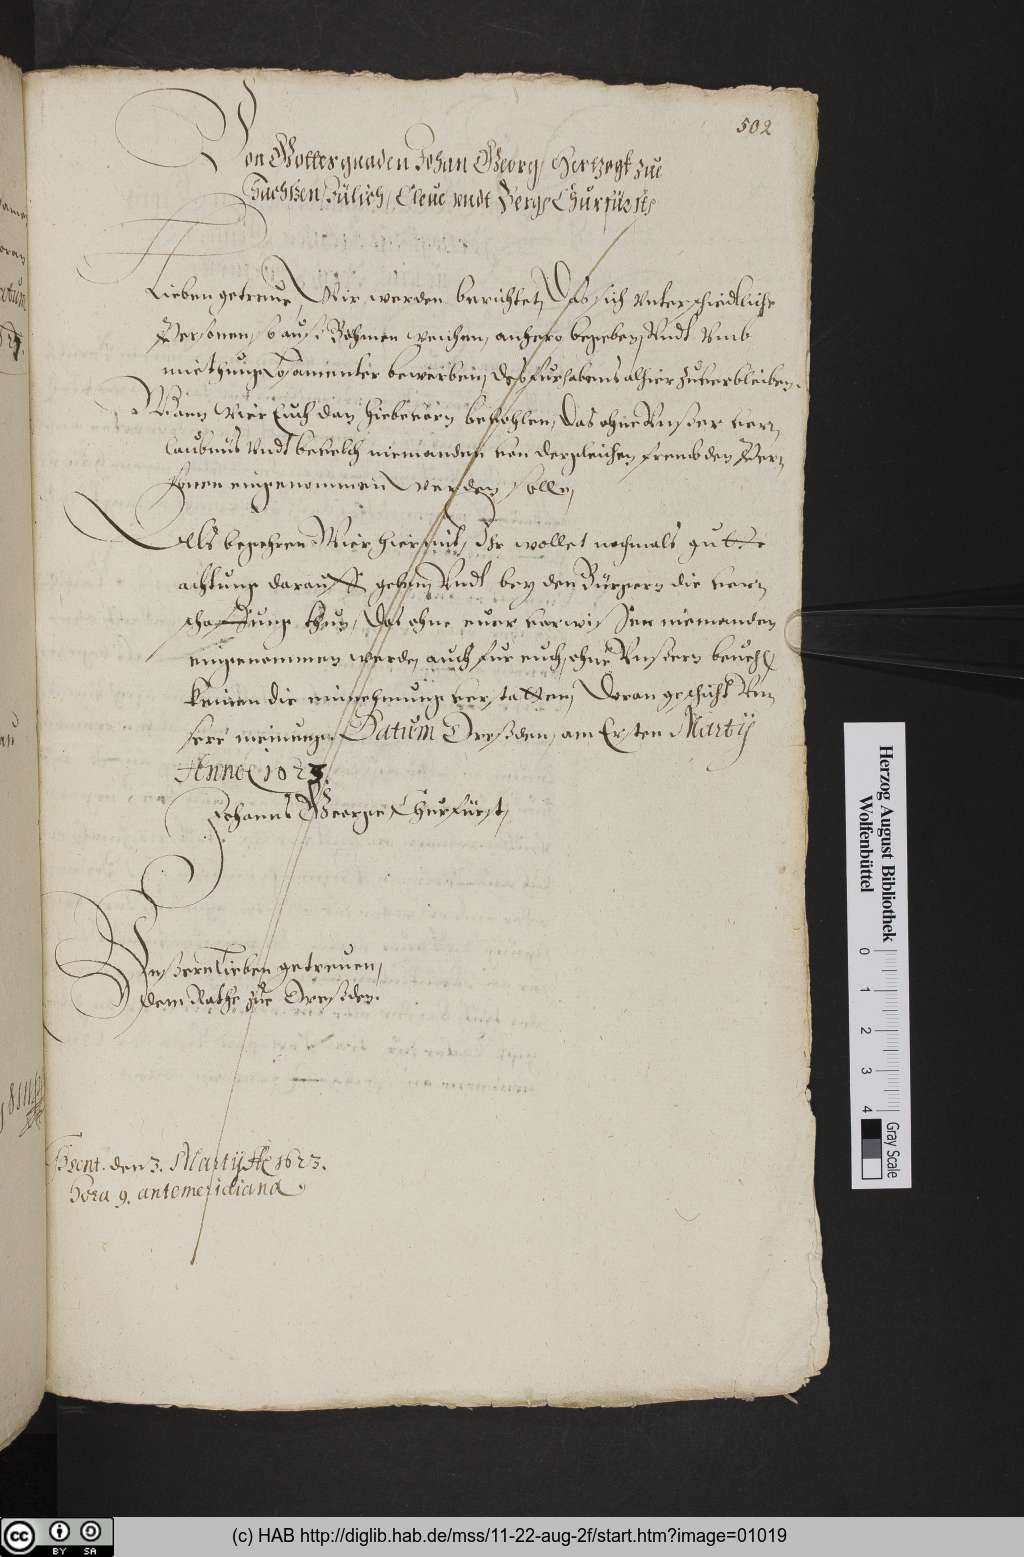 502
Von Gottes gnaden Johan Georg, Hertzogk zue
Sachssen, Jülich, Cleue vndt Bergk Churfürst,
Lieben getreue, Wir werden berichtet, Das sich vnterschiedtliche
Personen, so auß Böhmen weichen, anhero begeben, Vndt vmb
miethunge Losamenter bewerben, des furhabens alhier zuuerbleiben.
Wann Wier Euch dan hiebeuorn beuohlen, Das ohne Vnser ver,,
laubnüs Vndt beuelch niemanden von dergleichen frembden Per,,
sonen eingenommen werden solle,
Als begehren Wier hiermit, Ihr wollet nochmals gutte
achtung darauff geben, Vndt bey den Bürgern die ver,,
schaffung thun, Das ohne euer vorwissen niemanden
eingenommen werde, auch fur euch, ohne Vnsern beuehl,
keinen die einnehmung verstatten, Doran geschicht Vn,,
sere meinunge. Datum Dreßden, am Ersten Martij
Anno 1623.
Johanns George Churfürst,
Vnsern Lieben getreuen,
dem Rathe zue Dreßden.
den 3. Martij Ao 1623.
hora 9. antemeridiana.
Herzog August Bibliothek
Wolfenbüttel
0 1 2 3 4
Gray Scale
cc BY SA
(c) HAB http://diglib.hab.de/mss/11-22-aug-2f/start.htm?image=01019